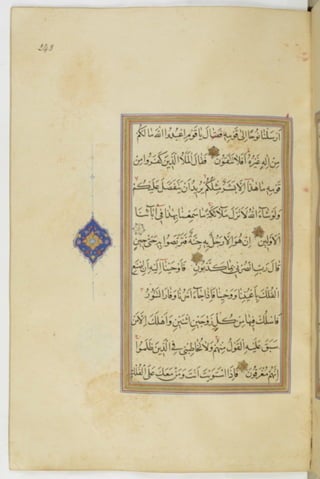 243
ارسلنا نوحا الى قومه فقال يا قوم اعبدوا الله مالكم
من اله غيره افلا تتقون فقال الملأ الذين كفروا من
قومه ما هذا الا بشر مثلكم يريد ان يتفضل عليكم
ولو شاء الله لانزل ملائكة ما سمعنا بهذا في آبائنا
الاولين ان هو الا رجل به جنة فتربصوا به حتى حين
قال رب انصرني بما كذبون فاوحينا اليه ان اصنع
الفلك باعيننا ووحينا فاذا جاء امرنا وفار التنور
فاسلك فيها من كل زوجين اثنين واهلك الا من
سبق عليه القول منهم ولا تخاطبني في الذين ظلموا
انهم مغرقون فاذا استويت انت ومن معك على الفلك